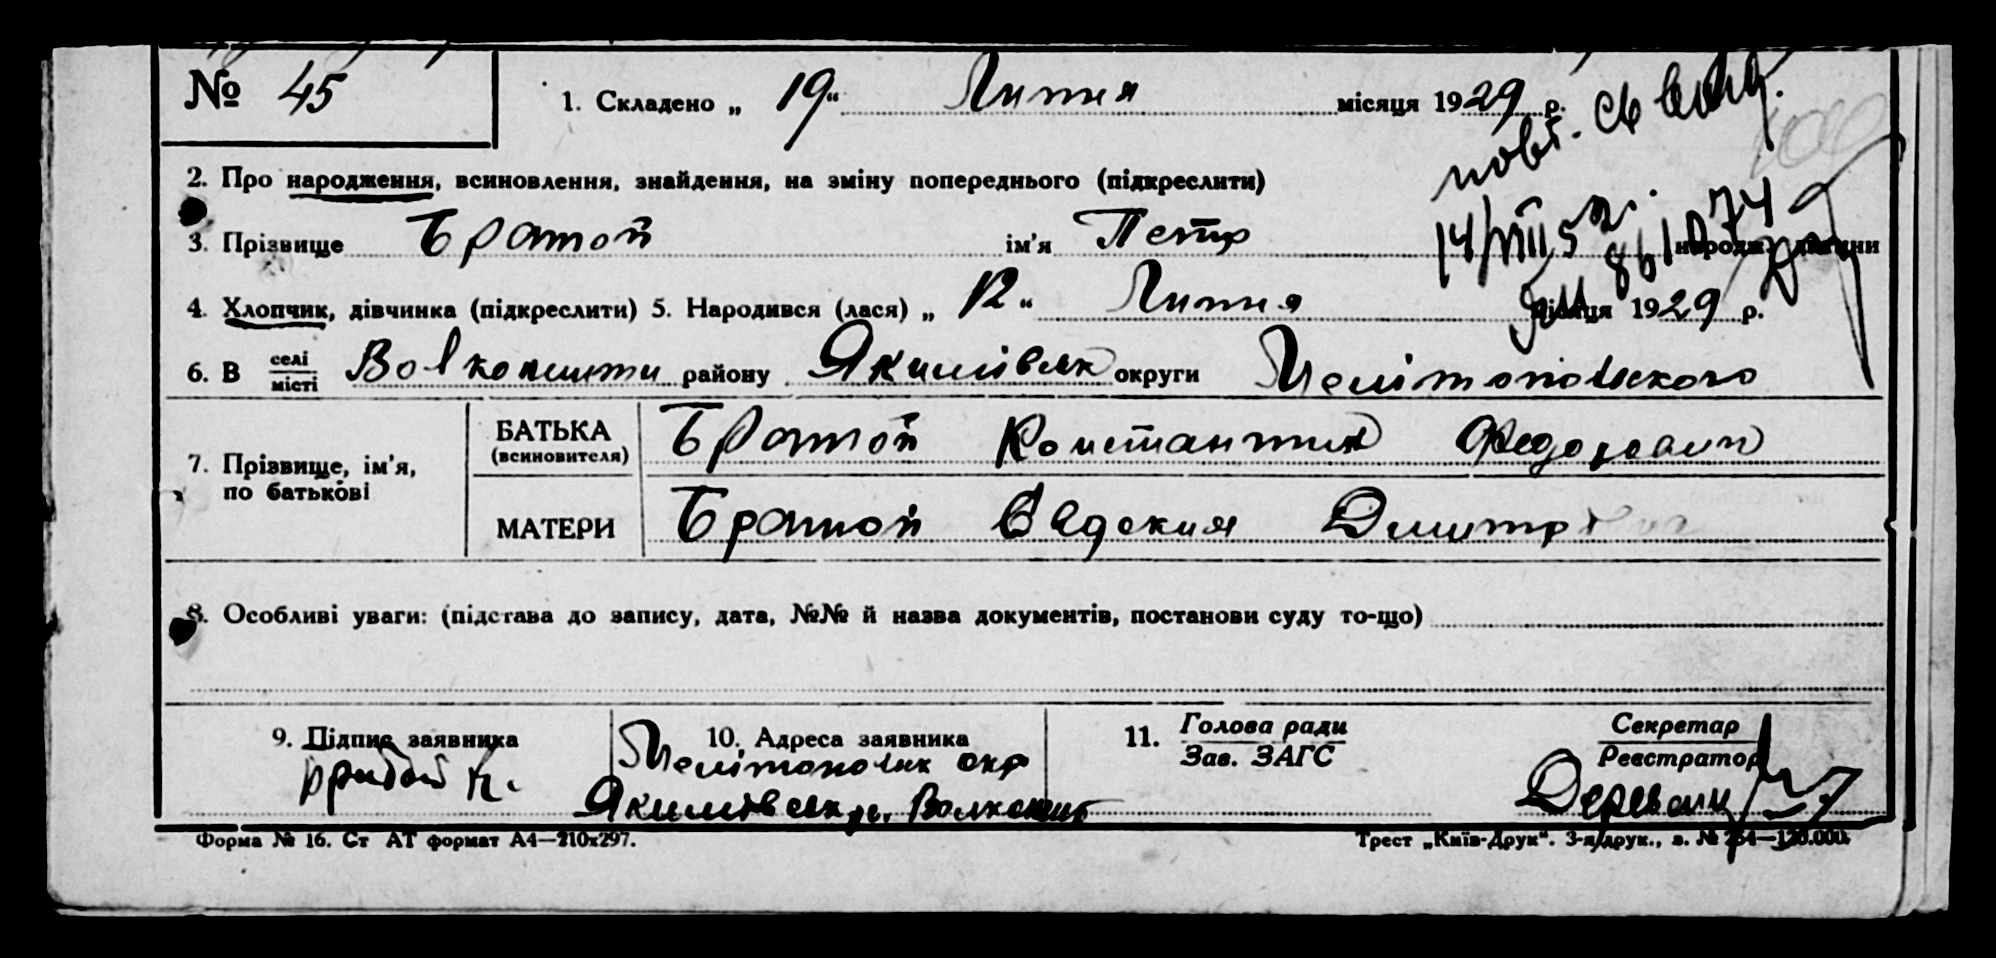 № 45 1. Складено „ 19 “ Липня місяця 1929 р.
повт. св видд.
2. Про народження, всиновлення, знайдення, на зміну попереднього (підкреслити)
14/VIII 52г.
3. Прізвище Братой ім’я Петр народж. дитини
4. Хлопчик, дівчинка (підкреслити) 5. Народився (лася) „ 12 “ Липня місяця 1929 р.
6. В селі місті Волконешти району Якимівськ округи Мелітопольского
7. Прізвище, ім’я, по батькові
БАТЬКА (всиновителя) Братой Константин Федорович
МАТЕРИ Братой Евдокия Дмитр
8. Особливі уваги: (підстава до запису, дата, №№ й назва документів, постанови суду то-що)
9. Підпис заявника 10. Адреса заявника 11. Голова ради Секретар
Зав. ЗАГС Реєстратор
Братой К. Мелітопольск окр
Якимівськ р. Волконешт
Форма № 16. Ст АТ формат А4—210х297. Трест „Київ-Друк“. 3-я друк., з. № 264—120.000.